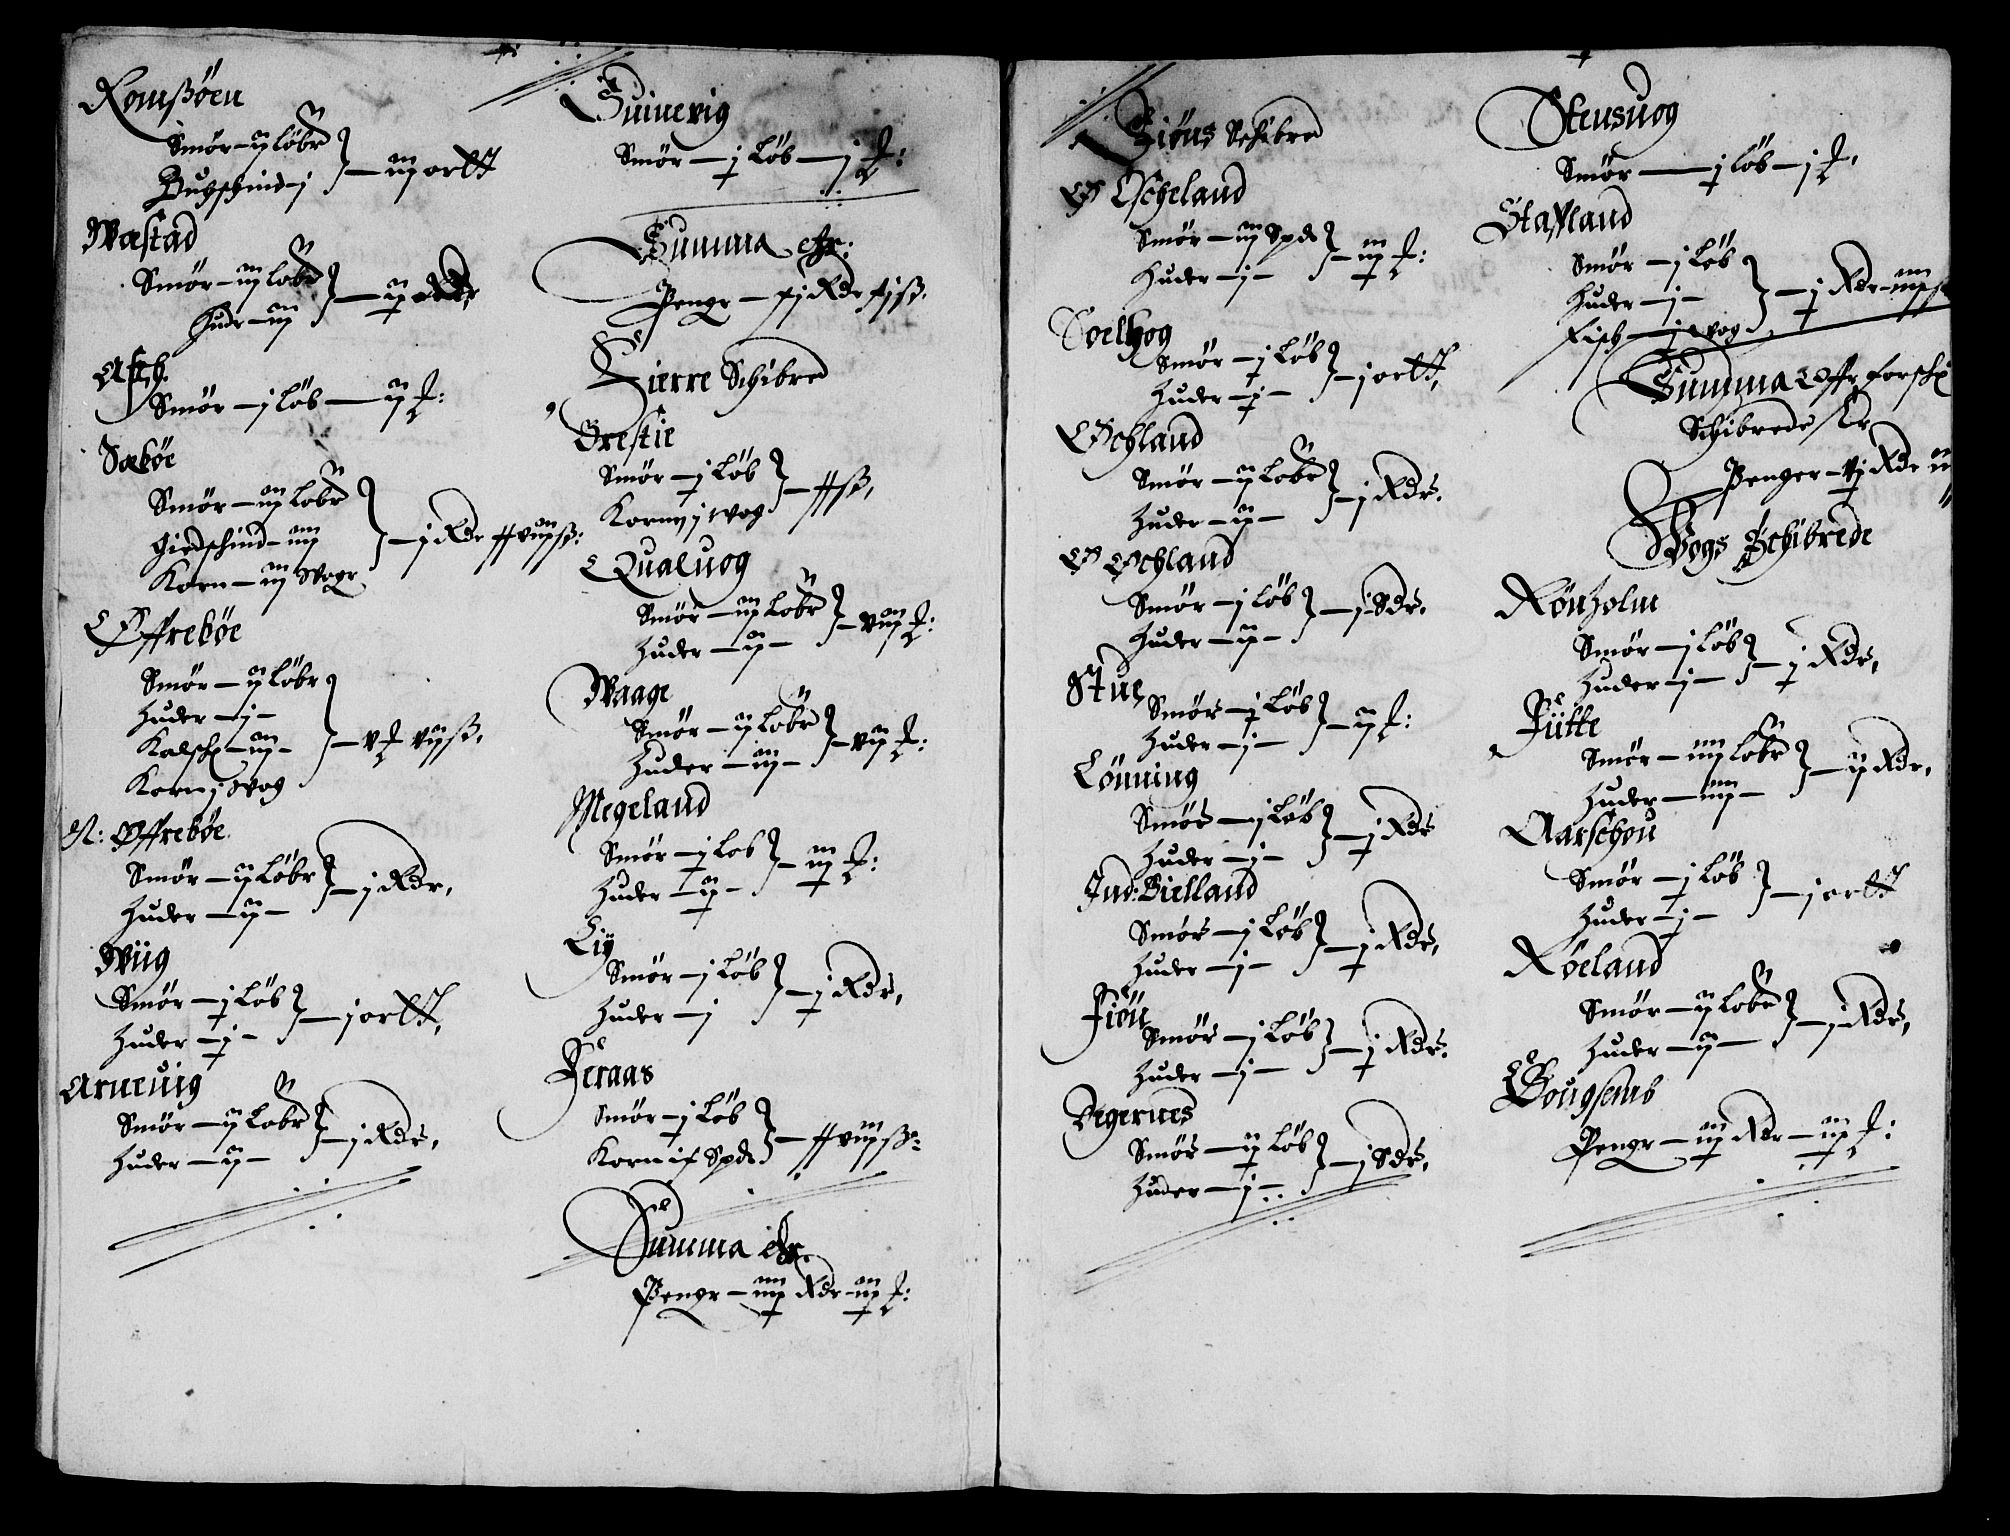 Romsøen
Smør – ij løbr
Bugschind – j } – iij ortt
Wastad
Smør – iij løbr
Hudr – iij } – ij Rdr
Aske
Smør – j løb – ij
Sæbøe
Smør – iij løbr
Giedschind – iiij
Korn – iij Wogr } – j Rdr
Øffrebøe
Smør – ij løbr
Huder – j –
Kalsch – iij –
Korn j wog } – v
N: Øffrebøe
Smør – ij Løbr
Huder – ij – } – j Rdr,
Wiig
Smør – j Løb
Huder – j – } – j ortt,
Arneuig
Smør – ij Løbr
Huder – ij – } – j Rdr,
Suinevig
Smør – j Løb – j
Summa
Pengr – xj Rdr xjß.
Fierre Schibred
Grestie
Smør – j Løb
Korn j wog } – xxß,
Qualuog
Smør – iij Løbr
Huder – ij –
Waage
Smør – ij Løbr
Huder – iij –
Megeland
Smør – j Løb
Huder – ij –
Liy
Smør – j Løb
Huder – j } – j Rdr,
Feraas
Smør – j Løb
Summa
Pengr – iiij Rdr – iij
Fiøns Schibred
Ø Escheland
Smør – iij Spd
Huder – j –
Soelhog
Smør – j Løb
Huder – j – } – j ortt,
Echland
Smør – ij Løbr
Huder – ij – } – j Rdr.
Ø Echland
Smør – j Løb
Huder – ij – } – j Sdr,
Stue
Smør – j Løb
Huder – j – } – ij
Lønning
Smør – j Løb
Huder – j – } – j Rdr
Ind: Bielland
Smør – j Løb
Huder – j – } – j Rdr,
Fiøn
Smør – j Løb
Huder – j – } – j Rdr.
Degernes
Smør – ij Løb
Huder – j – } – j Sdr,
Stensuog
Smør – j Løb – j
Stauland
Smør – j Løb
Huder – j –
Fisch – j wog } – j Rdr
Summa Offr forsch
Schibrede
Penger – vj Rdr
Wogs Schibrede
Rønholm
Smør – j Løb
Huder – j – } – j Rdr,
Fütte
Smør – iiij Løbr
Huder – iiij – } – ij Rdr,
Aarschou
Smør – j Løb
Huder – j – } – j ortt
Røeland
Smør – ij Løbr
Huder – ij – } – j Rdr,
Pengr – iij Rdr – iij